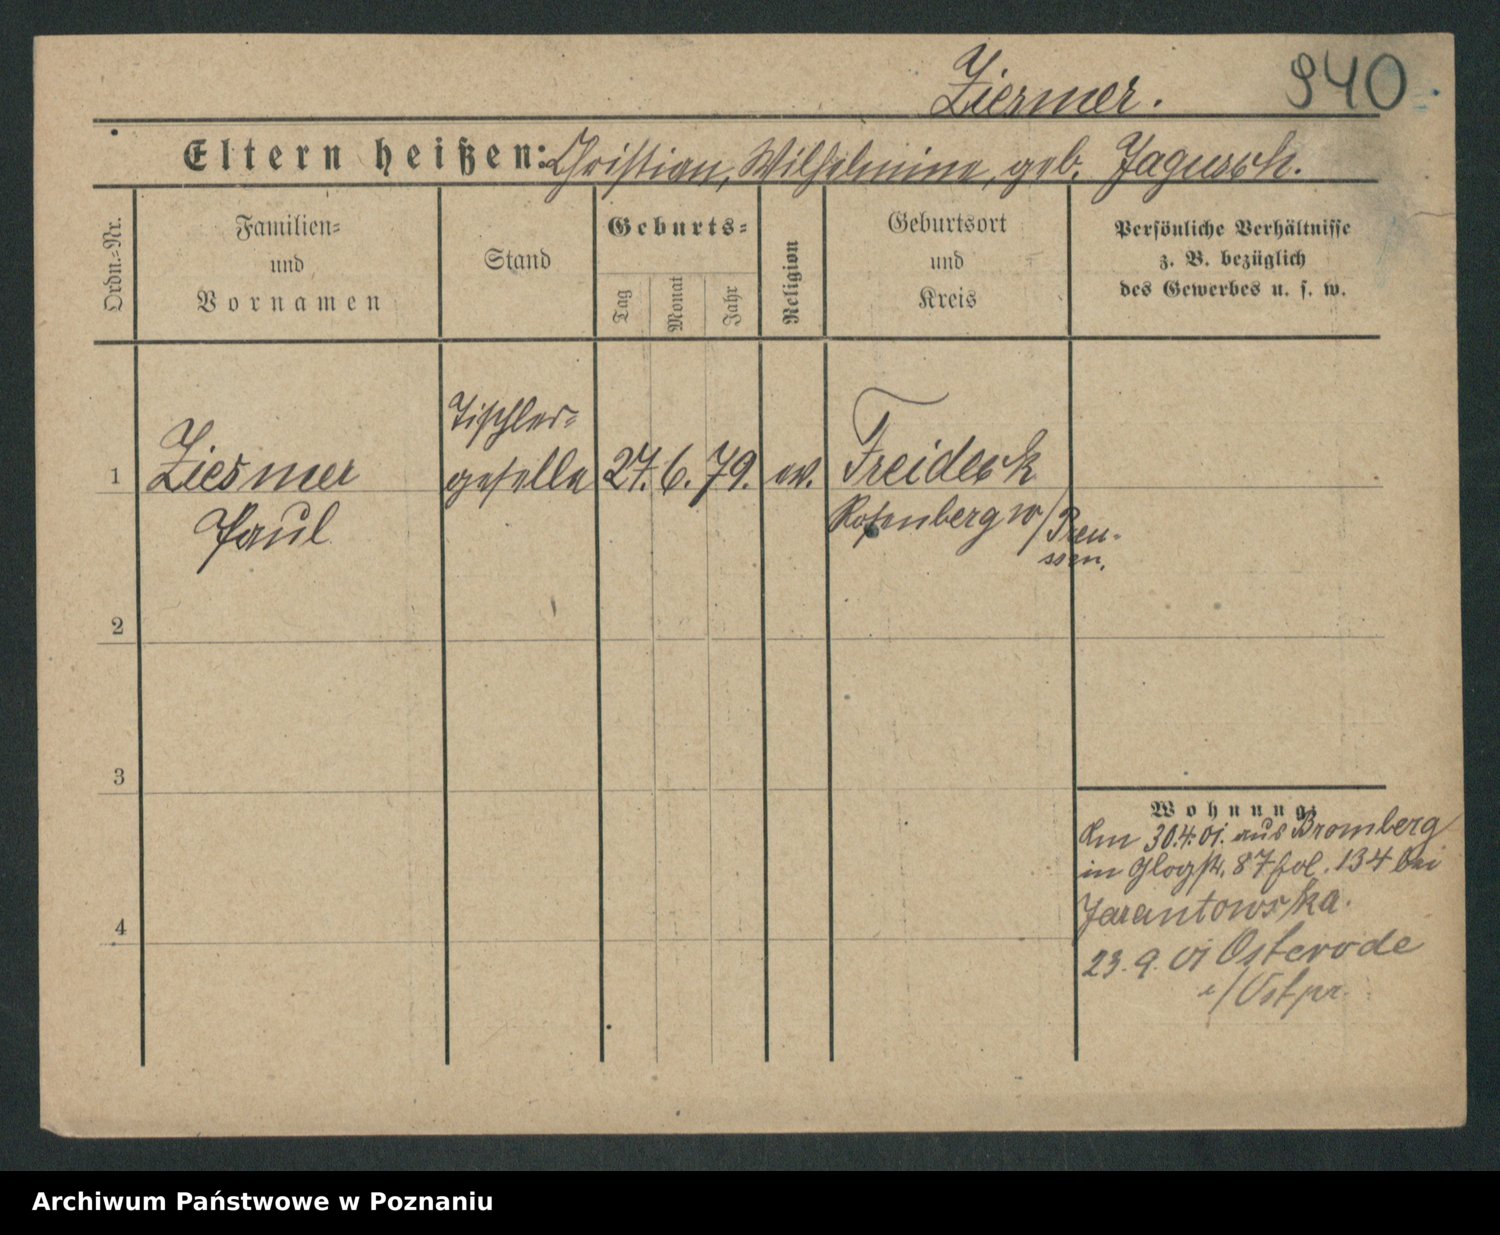 Ziesmer.
940
Eltern heißen: Christian, Wilhelmine, geb. Jagusch.
Ordn.-Nr.
Familien-
und
Vornamen
Stand
Geburts-
Tag
Monat
Jahr
Religion
Geburtsort
und
Kreis
Persönliche Verhältnisse
z. B. bezüglich
des Gewerbes u. s. w.
1
Ziesmer
Paul
Tischler-
geselle
27. 6. 79.
ev.
Freideck
Rosenberg w/Preu-
ssen.
2
3
4
Wohnung:
Am 30.4.01. aus Bromberg
in Glogstr. 87 fol. 134 bei
Jarantowska.
23. 9. 01 Osterode
i/Ostpr.
Archiwum Państwowe w Poznaniu